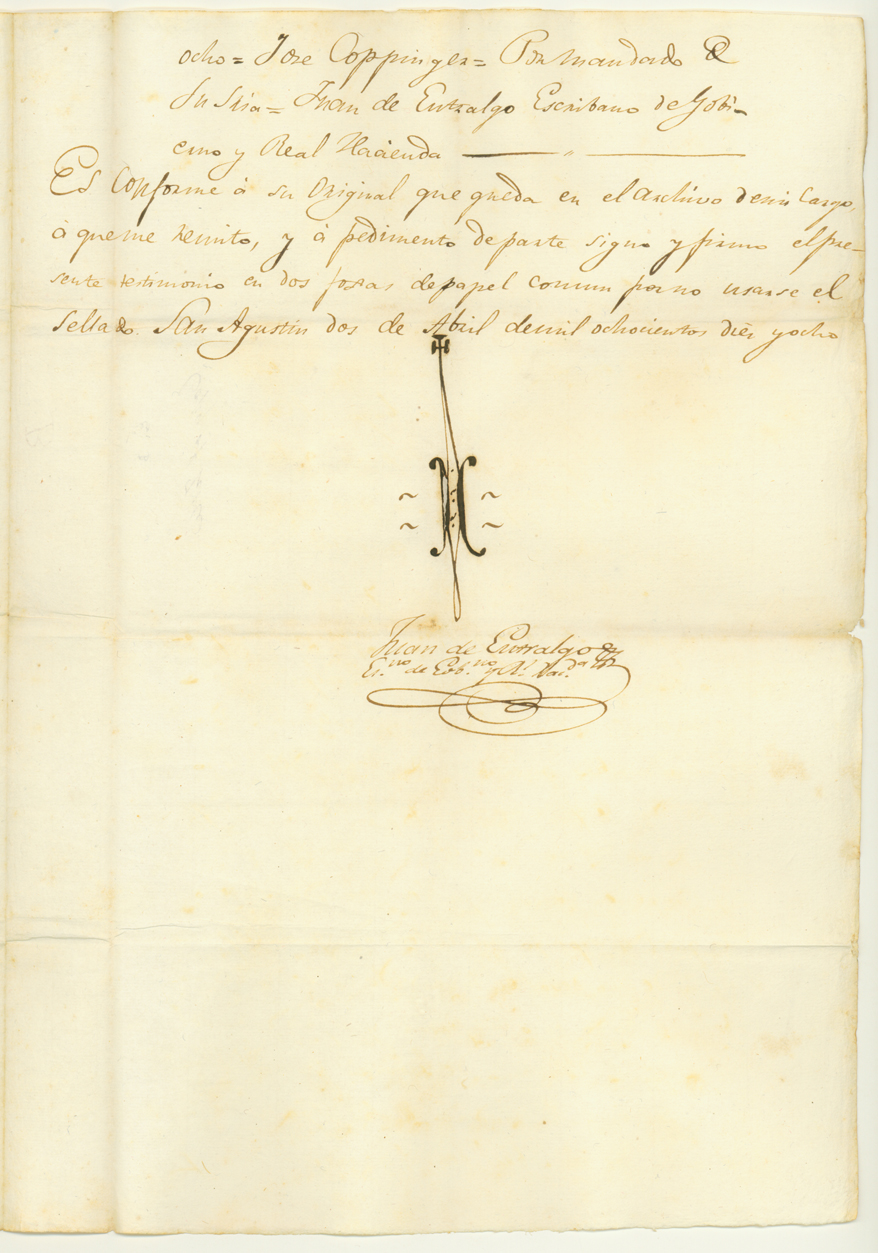 ocho = Jose Coppinger = Por mandado de
Su Sria = Juan de Entralgo Escribano de Gobi-
erno y Real Hacienda
Es Conforme à su Original que queda en el archivo de mi Cargo,
à que me remito, y à pedimento de parte signo y firmo el pre-
sente testimonio en dos foxas de papel comun por no usarse el
Sellado. San Agustin dos de Abril de mil ochocientos diez y ocho
Juan de Entralgo
Es.no de Gob.no y R.l Haz.da